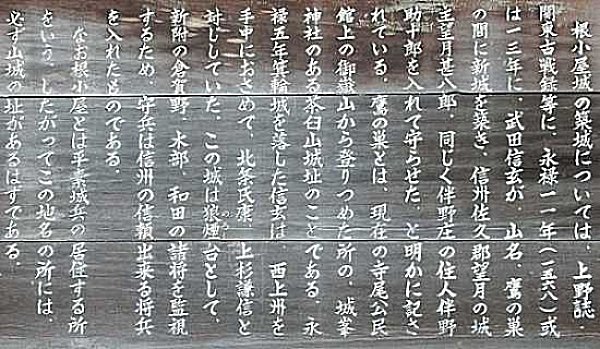 根小屋城の築城については、上野誌・
関東古戦録等に、永禄一一年(一五六八)或
は一三年に、武田信玄が、山名、鷹の巣
の間に新城を築き、信州佐久郡望月の城
主望月甚八郎、同じく伴野庄の住人伴野
助十郎を入れて守らせた、と明かに記さ
れている。鷹の巣とは、現在の寺尾公民
館上の御嶽山から登りつめた所の、城峯
神社のある茶臼山城址のことである。永
禄五年箕輪城を落した信玄は、西上州を
手中におさめて、北条氏康、上杉謙信と
対じしていた、この城は狼煙台として、
のろし
新附の倉賀野、木部、和田の諸将を監視
するため、守兵は信州の信頼出来る将兵
を入れたものである。
なお根小屋とは平素城兵の居住する所
をいう、したがってこの地名の所には、
必ず山城の址があるはずである。